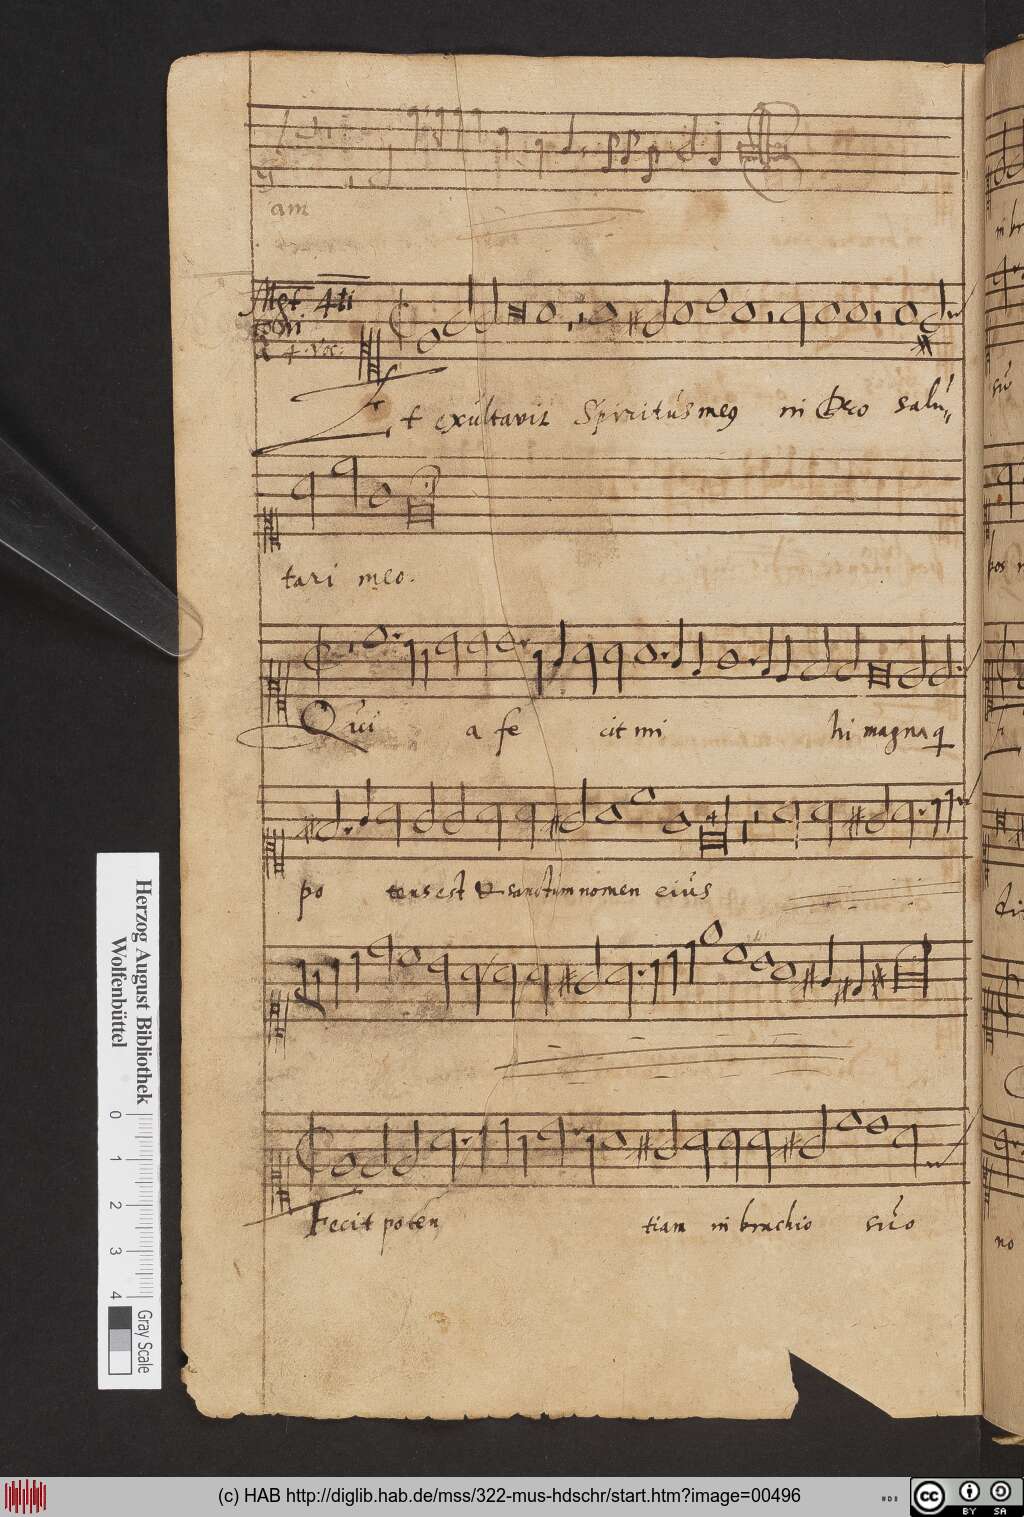 am
Mgt 4ti
toni
à 4. Voc.
Et exultavit Spiritus meo in Deo salu,,
tari meo.
Qui a fe cit mi hi magna q
po tens est & sanctum nomen eius
Fecit poten tiam in brachio suo
Herzog August Bibliothek
Wolfenbüttel
0 1 2 3 4
Gray Scale
(c) HAB http://diglib.hab.de/mss/322-mus-hdschr/start.htm?image=00496
cc
BY SA